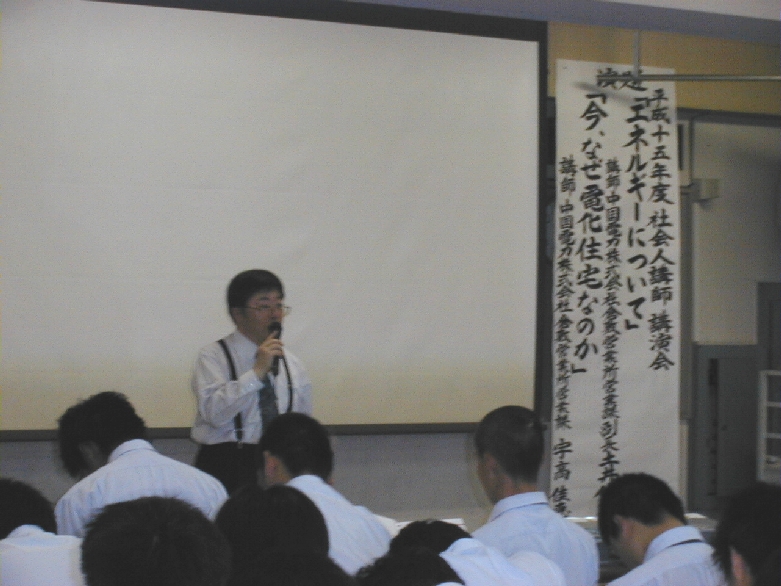 平成十五年度 社会人講師 講演会
演題「エネルギーについて」
講師 中国電力株式会社倉敷営業所営業課副長 土井
「今、なぜ電化住宅なのか」
講師 中国電力株式会社倉敷営業所営業課 宇高 佳